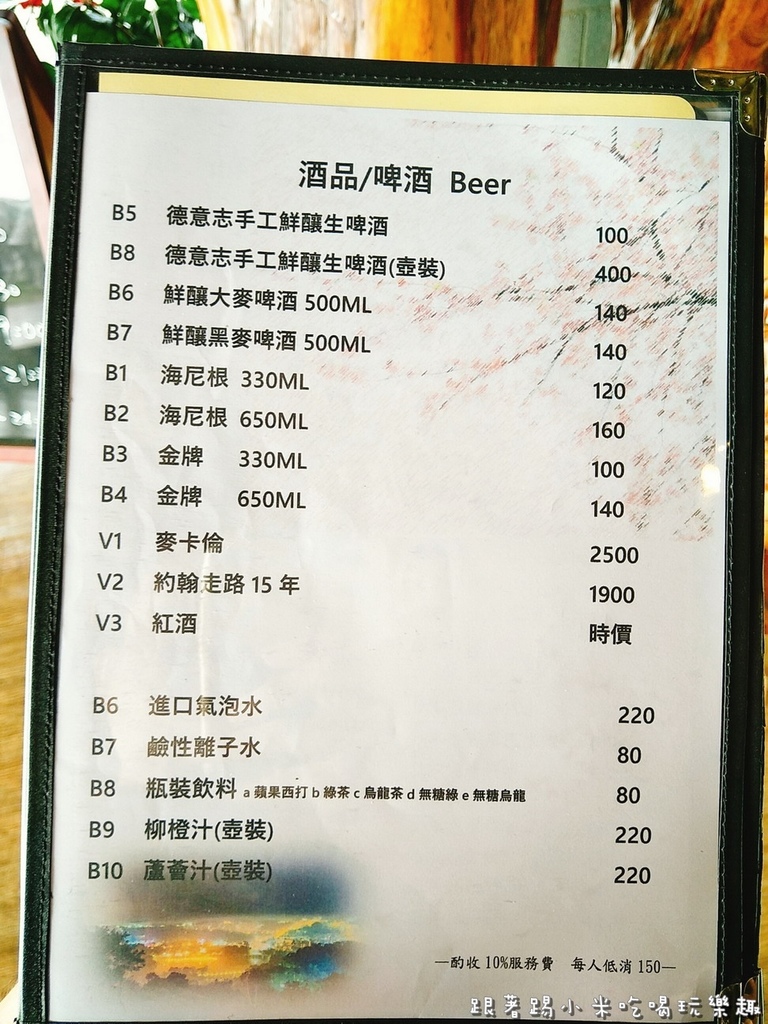 酒品/啤酒 Beer
B5 德意志手工鮮釀生啤酒 100
B8 德意志手工鮮釀生啤酒(壺裝) 400
B6 鮮釀大麥啤酒 500ML 140
B7 鮮釀黑麥啤酒 500ML 140
B1 海尼根 330ML 120
B2 海尼根 650ML 160
B3 金牌 330ML 100
B4 金牌 650ML 140
V1 麥卡倫 2500
V2 約翰走路 15 年 1900
V3 紅酒 時價
B6 進口氣泡水 220
B7 鹼性離子水 80
B8 瓶裝飲料 a 蘋果西打 b 綠茶 c 烏龍茶 d 無糖綠 e 無糖烏龍 80
B9 柳橙汁(壺裝) 220
B10 蘆薈汁(壺裝) 220
—酌收 10%服務費 每人低消 150—
跟著踢小米吃喝玩樂趣